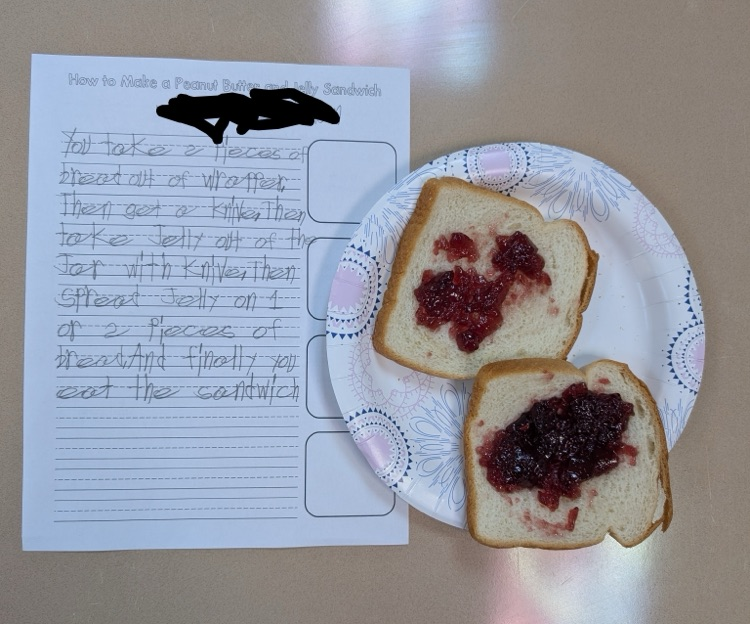 How to Make a Peanut Butter and Jelly Sandwich
You take 2 pieces of
bread out of wrapper.
Then get a Knive,Then
take Jelly out of the
Jar with Knive,Then
spread Jelly on 1
or 2 pieces of
bread,And finally you
eat the sandwich